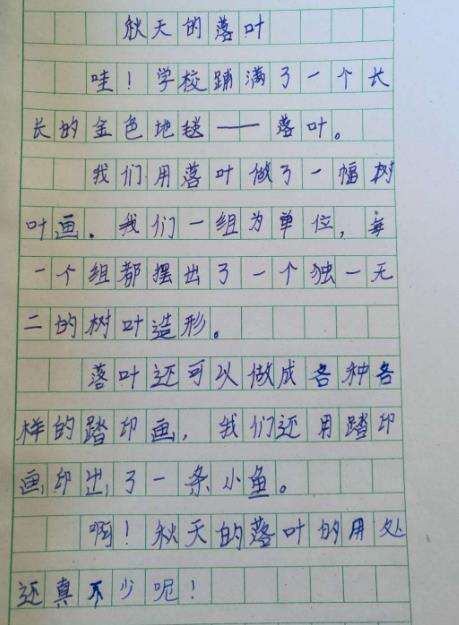 秋天的落叶
哇！学校踊满了一个长
长的金色地毯——落叶。
我们用落叶做了一幅树
叶画。我们一组为单位，每
一个组都摆出了一个独一无
二的树叶造形。
落叶还可以做成各种各
样的踏印画，我们还用踏印
画印出了一条小鱼。
啊！秋天的落叶的用处
还真不少呢！